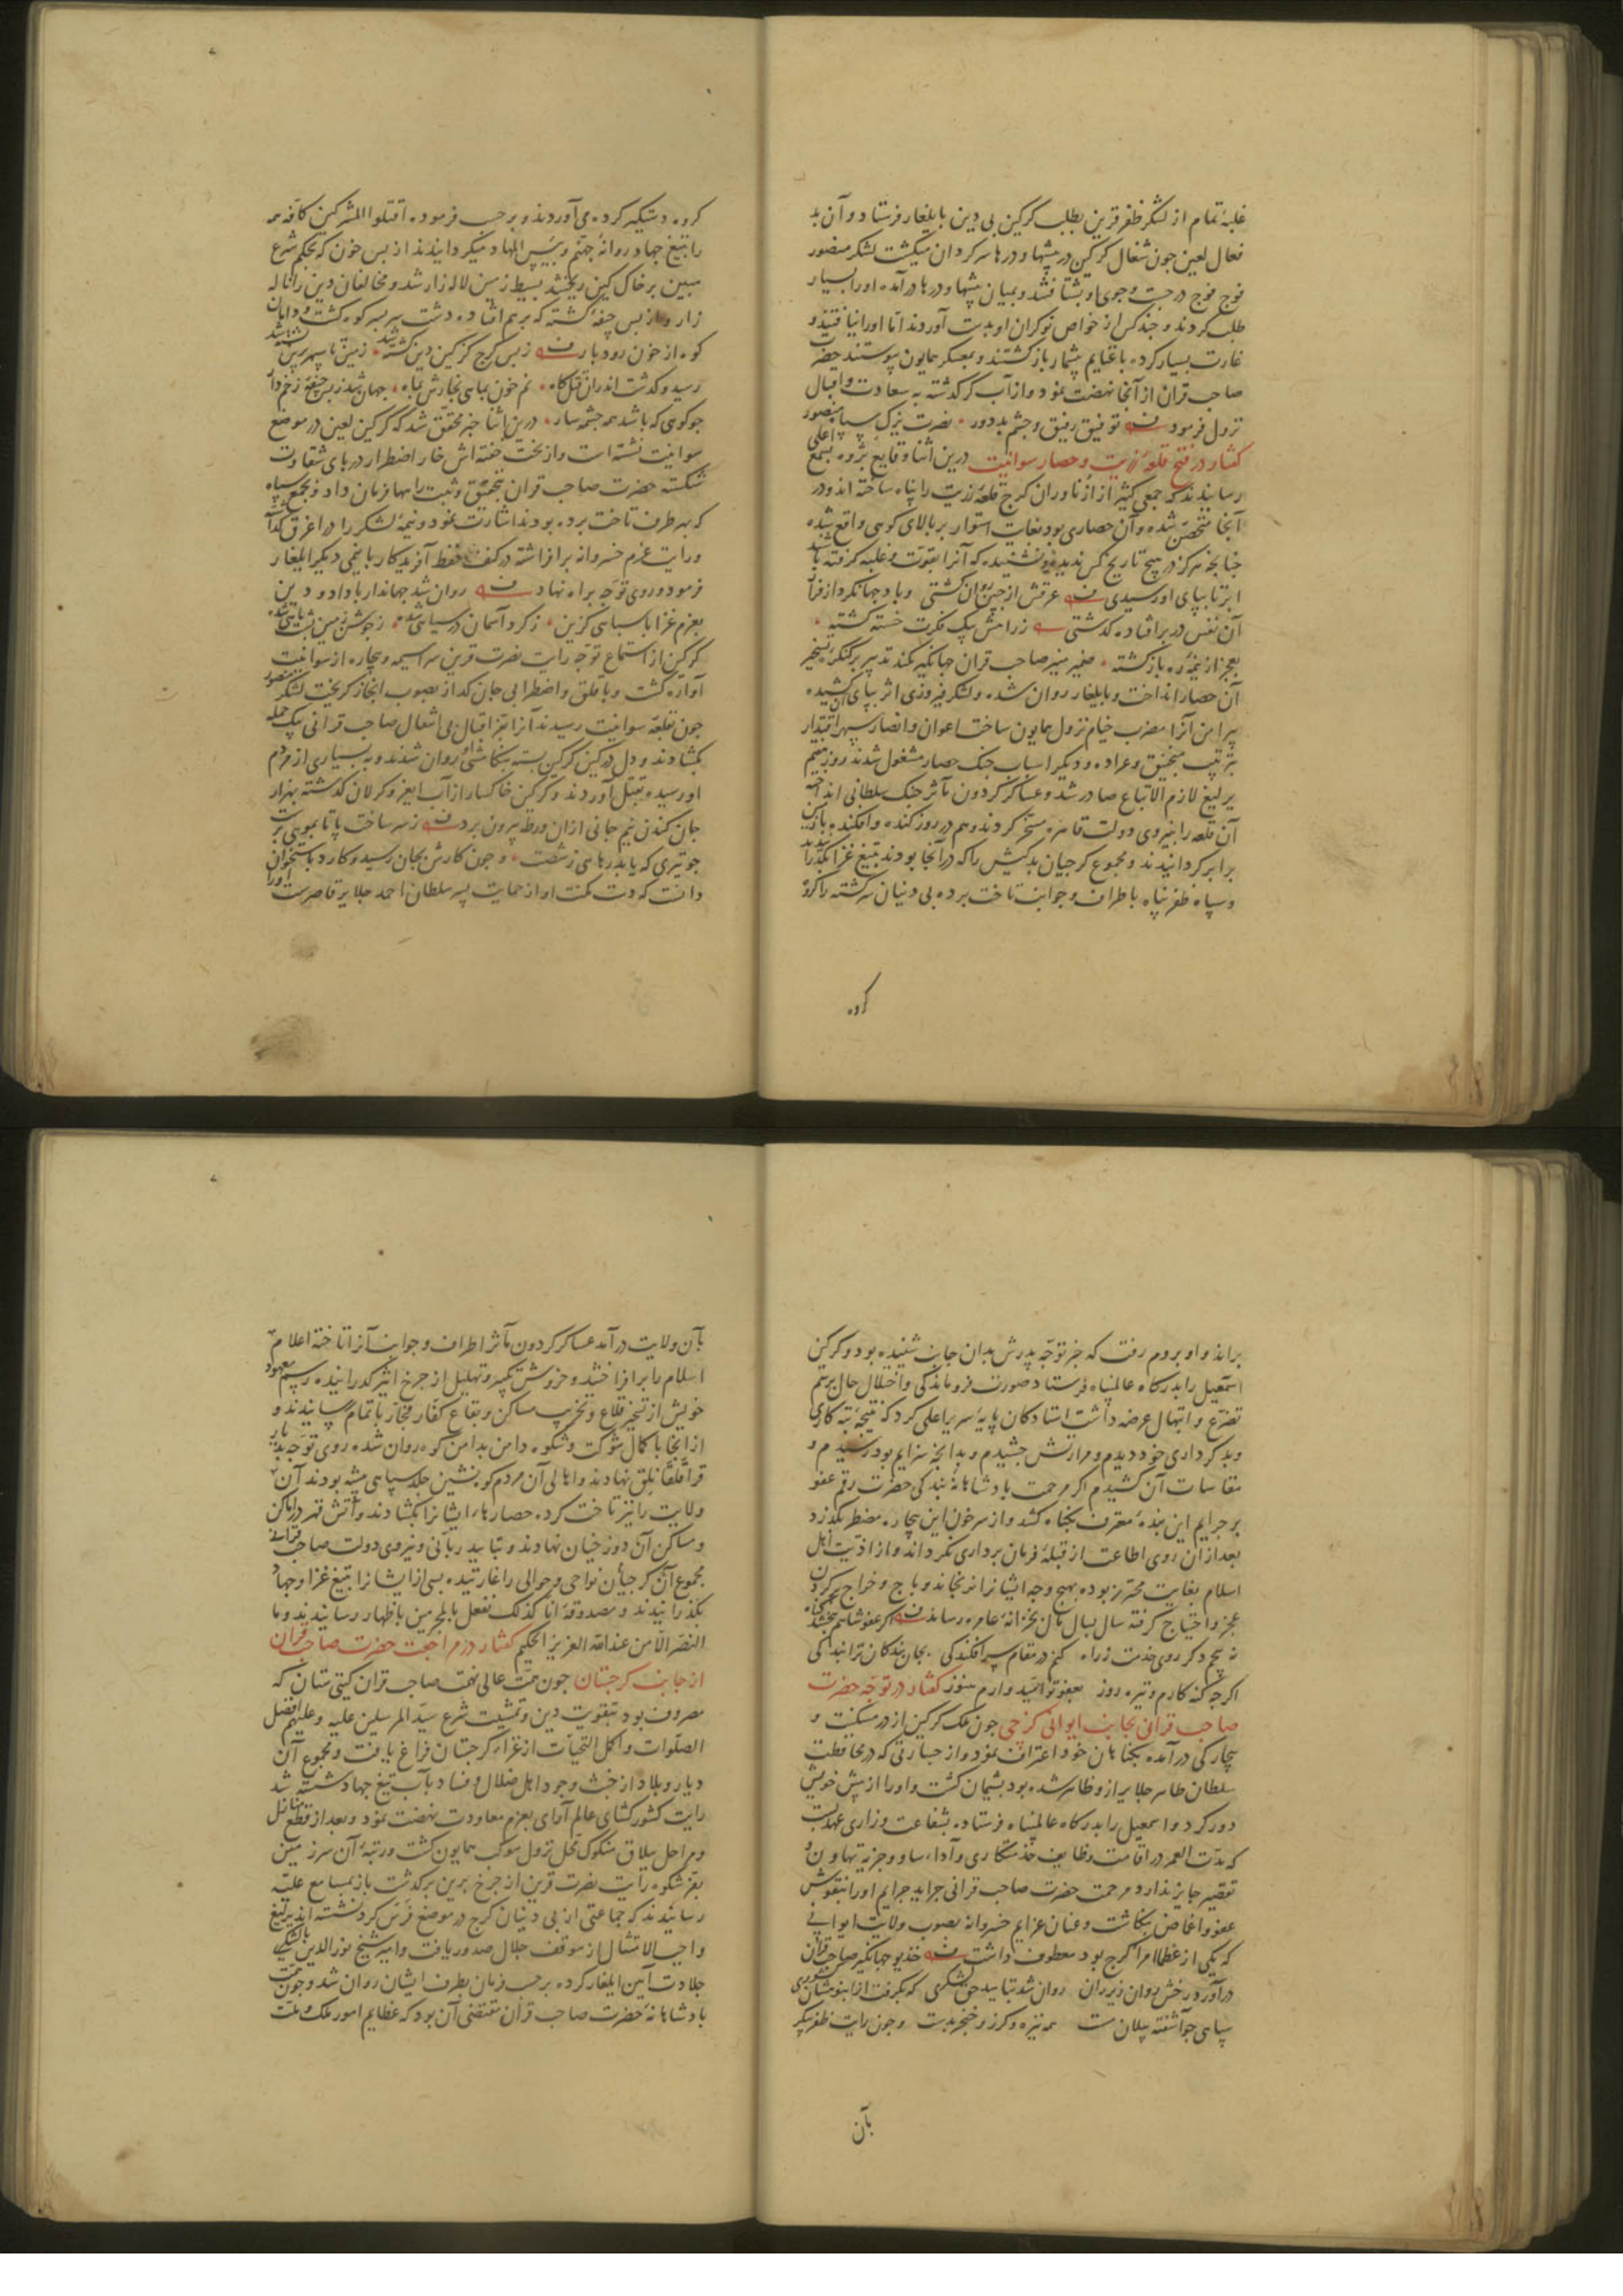 غلبهٔ تمام از لشکر ظفر قرین بطلب کرکین بی دین بایلغار فرستاد و آن بد
فعال لعین چون شغال کرکین در بیشها و درها سرکردان میکشت لشکر منصور
فوج فوج در جست و جوی او بشتافتند و بمیان بیشها و درها درآمده او را بسیار
طلب کردند و چند کس از خواص نوکران او بدست آوردند اما او را نیافتند و
غارت بسیار کرده با غنایم بیشمار بازکشتند و بمعسکر همایون پیوستند حضرت
صاحب قران از آنجا نهضت نمود و از آب کر کذشته به سعادت و اقبال
نزول فرمود توفیق رفیق و چشم بد دور نصرت یزک سپاه منصور
کفتار در فتح قلعهٔ زریت و حصار سوانیت درین اثنا وقایع پژوه بسمع اعلی
رسانیدند که جمعی کثیر از ازناوران کرج قلعهٔ زریت را پناه ساخته اند و در
آنجا متحصن شده و آن حصاری بود بغایت استوار بر بالای کوهی واقع شده
چنانچه هرکز در هیچ تاریخ کس ندیده و نشنیده که آنرا بقوت و غلبه کرفته باشد
ابر تا بپای او رسیدی عرقش از جبین روان کشتی و باد جهانکرد از فراز
آن نفس در بر افتاده کذشتی ز رامش پیک فکرت خسته کشته
بعجز از نیمهٔ ره بازکشته ضمیر منیر صاحب قران جهانکیر کمند تدبیر بر کنکرهٔ تسخیر
آن حصار انداخت و بایلغار روان شده و لشکر فیروزی اثر بپای آن کشیده
پیرامن آنرا مضرب خیام نزول همایون ساخت اعوان و انصار سپهر اقتدار
بترتیب منجنیق و عراده و دیکر اسباب جنک حصار مشغول شدند روز هفتم
یرلیغ لازم الاتباع صادر شد و عساکر کردون مآثر جنک سلطانی انداخته
آن قلعه را بنیروی دولت قاهره مسخر کردند و هم در روز کنده و افکنده با زمین
برابر کردانیدند و مجموع کرجیان بدکیش را که در آنجا بودند بتیغ غزا بکذرانیدند
و سپاه ظفر پناه باطراف و جوانب تاخت برده بی دینان سرکشته را کروه
کروه
کروه دستکیر کرده می آوردند و برحسب فرموده اقتلوا المشرکین کافه همه
را بتیغ جهاد روانهٔ جهنم و بئس المهاد میکردانیدند از بس خون که بحکم شرع
مبین بر خاک کین ریختند بسیط زمین لاله زار شد و مخالفان دین را ناله
زار و از بس جیفهٔ کشته که برهم افتاده دشت سربسر کوه کشت و دامان
کوه از خون رودبار ز بس کرج کز کین دین کشته شد زمین تا سپهر برین پشته شد
رسید و کذشت اندران قتل کاه نم خون بماهی بخارش بماه جهان شد ز بس جیفهٔ زخم دار
چو کوهی که باشد همه چشمه سار درین اثنا خبر محقق شد که کرکین لعین در موضع
سوانیت نشسته است و از بخت خفته اش خار اضطرار در پای شقاوت
شکسته حضرت صاحب قران بتحقیق و تثبت راهها فرمان داد و بجمع سپاه
که بهر طرف تاخت برده بودند اشارت نمود و نیمهٔ لشکر را در اغرق کذاشته
و رایت عزم خسروانه برافراشته در کنف حفظ آفریدکار با نیمی دیکر ایلغار
فرمود و روی توجه براه نهاد روان شد جهاندار با داد و دین
بعزم غزا با سپاهی کزین ز کرد آسمان در سیاهی شده ز جوشن زمین پشت ماهی شده
کرکین از استماع توجه رایت نصرت قرین سراسیمه و بیچاره از سوانیت
آواره کشت و با قلق و اضطرابی جان کداز بصوب ابخاز کریخت لشکر منصور
چون بقلعهٔ سوانیت رسیدند آنرا بفر اقبال بی انتقال صاحب قرانی بیک حمله
بکشادند و دل در کین کرکین بسته بتکامشی او روان شدند و به بسیاری از مردم
او رسیده بقتل آوردند و کرکین خاکسار از آب ایغر و کرلان کذشته بهزار
جان کندن نیم جانی ازان ورطه بیرون برد زسر ساخت پا تا بمویی برست
چو تیری که یابد رهایی ز شست و چون کارش بجان رسید و کارد باستخوان
دانست که دست مکنت او از حمایت پسر سلطان احمد جلایر قاصرست او را
براند و او بروم رفت که خبر توجه پدرش بدان جانب شنیده بود و کرکین
اسمعیل را بدرکاه عالم پناه فرستاد صورت فروماندکی و اختلال حال برسم
تضرع و ابتهال عرضه داشت استادکان پایهٔ سریر اعلی کرد که نتیجهٔ تبه کاری
و بدکرداری خود دیدم و مرارتش چشیدم و بدانچه سزایم بود رسیدم و
مقاسات آن کشیدم اکر مرحمت پادشاهانه بندکی حضرت رقم عفو
بر جرایم این بندهٔ معترف بکناه کشد و از سر خون این بیچاره مضطر بکذرد
بعد ازان روی اطاعت از قبلهٔ فرمان برداری نکرداند و از اذیت اهل
اسلام بغایت محترز بوده بهیچ وجه ایشانرا نرنجاند و باج و خراج بکردن
عجز و احتیاج کرفته سال بسال مال بخزانهٔ عامره رساند اکر عفو شاهم ببخشد کناه
نه پیچم دکر روی خدمت ز راه کنم در مقام سرافکندکی بجان بندکان ترا بندکی
اکرچه کنه کارم و تیره روز بعفو تو امیدوارم هنوز کفتار در توجه حضرت
صاحب قرانی بجانب ایوانی کرجی چون ملک کرکین از در مسکنت و
بیچارکی درآمده بکناهان خود اعتراف نمود و از جسارتی که در محافظت
سلطان طاهر جلایر ازو ظاهر شده بود پشیمان کشت و او را از پیش خویش
دور کرد و اسمعیل را بدرکاه عالم پناه فرستاده بشفاعت و زاری عهد بست
که مدت العمر در اقامت وظایف خدمتکاری و آداء ساو و جزیه تهاون و
تقصیر جایز ندارد مرحمت حضرت صاحب قرانی جراید جرایم او را بنقوش
عفو و اغماض بنکاشت و عنان عزایم خسروانه بصوب ولایت ایوانی
که یکی از عظما امرا کرج بود معطوف داشت خدیو جهانکیر صاحب قران
درآورد رخش روان زیر ران روان شد بتایید حق لشکری که بکرفت از انبوهشان
سپاهی چو آشفته پیلان مست همه نیزه و کرز و خنجر بدست و چون رایت ظفر پیکر
بآن
بآن ولایت درآمد عساکر کردون مآثر اطراف و جوانب آنرا تاخته اعلام
اسلام را برافراختند و خروش تکبیر و تهلیل از چرخ اثیر کذرانیده رسم معهود
خویش از تسخیر قلاع و تخریب مساکن و بقاع کفار فجار باتمام رسانیدند و
از انجا با کمال شوکت و شکوه دامن بدامن کوه روان شده روی توجه بدیار
قراقلقانلق نهادند و اهالی آن مردم کوه نشین جلد سپاهی پیشه بودند آن
ولایت را نیز تاخت کرده حصارهاء ایشانرا بکشادند و آتش قهر در اماکن
و مساکن آن دوزخیان نهادند و بتایید ربانی و نیروی دولت صاحب قرانی
مجموع آن کرجیان نواحی و حوالی را غارتیده بسی از ایشانرا بتیغ غزا و جهاد
بکذرانیدند و مصدوقهٔ انا کذلک نفعل بالمجرمین باظهار رسانیدند و ما
النصر الا من عند الله العزیز الحکیم کفتار در مراجعت حضرت صاحب قران
از جانب کرجستان چون همت عالی نهمت صاحب قران کیتی ستان که
مصروف بود بتقویت دین و تمشیت شرع سید المرسلین علیه و علیهم افضل
الصلوات و اکمل التحیات از غزاء کرجستان فراغ یافت و مجموع آن
دیار و بلاد از خبث وجود اهل ضلال و فساد بآب تیغ جهاد شسته شد
رایت کشورکشای عالم آرای بعزم معاودت نهضت نمود و بعد از قطع منازل
و مراحل ییلاق منکوک محل نزول موکب همایون کشت و رتبهٔ آن سرزمین
بفر شکوه رایت نصرت قرین از چرخ برین برکذشت باز بمسامع علیه
رسانیدند که جماعتی از بی دینان کرج در موضع فرس کرد نشسته اند یرلیغ
واجب الامتثال از موقف جلال صدور یافت و امیر شیخ نورالدین با لشکری
جلادت آیین ایلغار کرده برحسب فرمان بطرف ایشان روان شد و چون همت
پادشاهانهٔ حضرت صاحب قران مقتضی آن بود که عظایم امور ملک و ملت